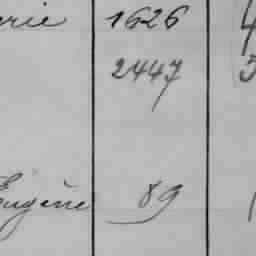 erie 1626
2447
Eugène 89